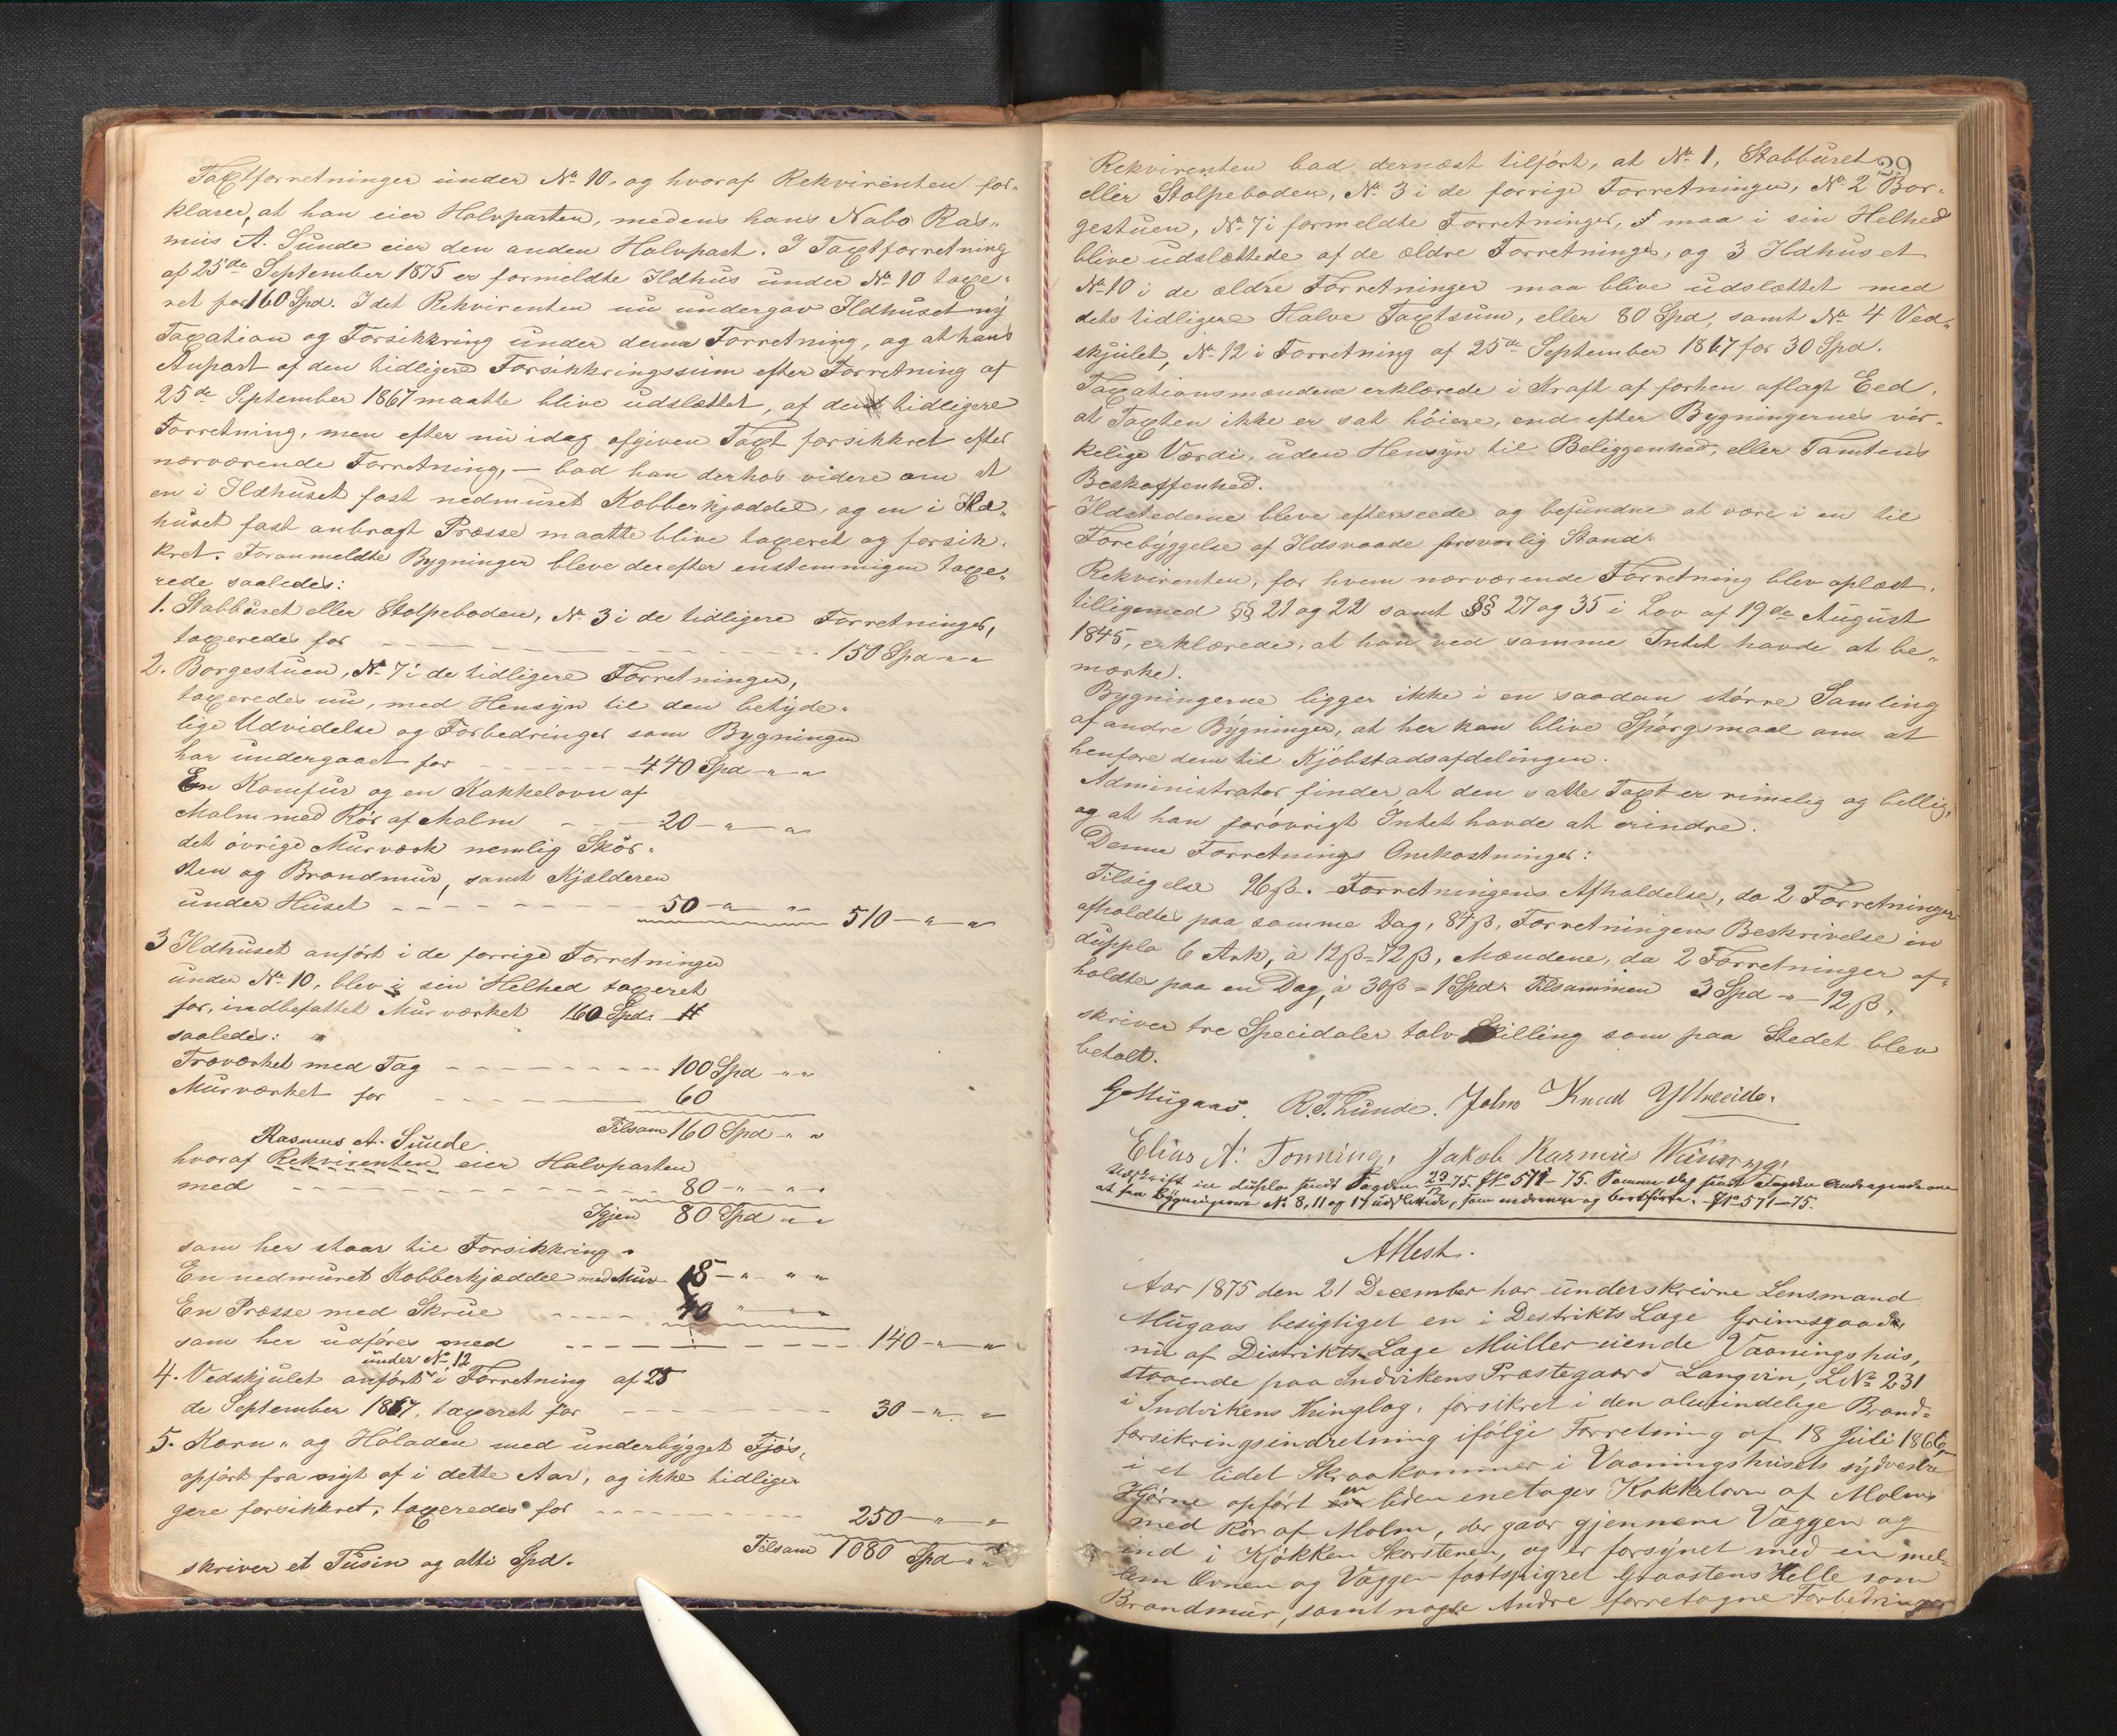 Taxtforretninger under No 10, og hvoraf Rekvirenten for-
klarer, at han eier Halvparten, medens hans Nabo Ras-
mus A. Sunde eier den anden Halvpart. I Taxtforretning
af 25de September 1875 er formeldte Ildhus under No 10 taxe-
ret for 160 Spd. Idet Rekvirenten nu undergav Ildhuset ny
Taxation og Forsikkring under denne Forretning, og at hans
Anpart af den tidligere Forsikkringssum efter Forretning af
25de September 1867 maatte blive udslættet, af den tidligere
Forretning, men efter nu idag afgiven Taxt forsikkret efter
nærværende Forretning, — bad han derhos videre om at
en i Ildhuset fast nedmuret Kobberkjæddel, og en i Ild-
huset fast anbragt Præsse maatte blive taxeret og forsik-
kret. Foranmeldte Bygninger bleve derefter enstemmigen taxe-
rede saaledes:
1. Stabburet eller Stolpeboden, No 3 i de tidligere Forretninger,
taxeredes for 150 Spd " "
2. Borgestuen, No 7 i de tidligere Forretninger,
taxeredes nu, med Hensyn til den betyde-
lige Udvidelse og Forbedringer som Bygningen
har undergaaet for 440 Spd " "
En Komfur og en Kakkelovn af
Malm med Rør af Malm 20 " "
det øvrige Murværk nemlig Skor-
sten og Brandmur, samt Kjælderen
under Huset 50 " " 510 " "
3 Ildhuset anført i de forrige Forretninger
under No 10, blev i sin Helhed taxeret
for, indbefattet Murværket 160 Spd.
saaledes:
Træværket med Tag 100 Spd " "
Murværket for 60
Tilsam 160 Spd " "
Rasmus A. Sunde
hvoraf Rekvirenten eier Halvparten
med 80 " " "
Igjen 80 Spd " "
som her staar til Forsikkring.
En nedmuret Kobberkjæddel med Mur " " "
En Præsse med Skrue 40 " " "
som her udføres med 140 " "
under No 12
4. Vedskjulet anført i Forretning af 25
de September 1867, taxeret for 30 " "
5. Korn- og Høladen med underbygget Fjøs,
opført fra nyt af i dette Aar, og ikke tidlige-
gere forsikkret, taxeredes for 250 " "
Tilsam 1080 Spd " "
skriver et Tusin og otti Spd.
29
Rekvirenten bad dernæst tilført, at No 1, Stabburet
eller Stolpeboden, No 3 i de forrige Forretninger, No 2 Bor-
gestuen, No 7 i formeldte Forretninger, maa i sin Helhed
blive udslættede af de ældre Forretninger, og 3 Ildhuset
No 10 i de ældre Forretninger maa blive udslættet med
dets tidligere Halve Taxtsum, eller 80 Spd, samt No 4 Ved-
skjulet, No 12 i Forretning af 25de September 1867 for 30 Spd.
Taxationsmændene erklærede i Kraft af forhen aflagt Eed,
at Taxten ikke er sat høiere, end efter Bygningernes vir-
kelige Værdi, uden Hensyn til Beliggenhed, eller Tomtens
Beskaffenhed.
Ildstederne bleve efterseede og befundne at være i en til
Forebyggelse af Ildsvaade forsvarlig Stand.
Rekvirenten, for hvem nærværende Forretning blev oplæst,
tilligemed §§ 21 og 22 samt §§ 27 og 35 i Lov af 19de August
1845, erklærede, at han ved samme Intet havde at be-
mærke.
Bygningerne ligger ikke i en saadan større Samling
af andre Bygninger, at her kan blive Spørgsmaal om at
henføre dem til Kjøbstadsafdelingen.
Administrator finder, at den satte Taxt er rimelig og billig,
og at han forøvrigt Intet havde at erindre.
Denne Forretnings Omkostninger:
Tilsigelse 96 ß. Forretningens Afholdelse, da 2 Forretninger
afholdtes paa samme Dag, 84 ß, Forretningens Beskrivelse in
duplo 6 Ark, à 12 ß = 72 ß, Mændene, da 2 Forretninger af-
holdtes paa en Dag, à 30 ß = 1 Spd. Tilsammen 3 Spd " 12 ß,
skriver tre Specidaler tolv Skilling som paa Stedet blev
betalt.
G Mugaas. R. T. Sunde. John Knud Ytreeide.
Elias A. Tonning, Jakob Rasmus
Udskrift in duplo sendt Fogden 75. No 571 – 75. Samme Dag sendt Fogden Andragende om
at faa Bygningerne No 8, 11 og 14 udslettede, som nedrevne og bortførte. No 571–75.
Attest.
Aar 1875 den 21 December har underskrivne Lensmand
Mugaas besigtiget en i Destrikts Læge Grimsgaards
nu af Distrikts Læge Müller eiende Vaaningshus,
staaende paa Indvikens Præstegaard Langvin, L No 231
i Indvikens Thinglag, forsikret i den almindelige Brand-
forsikringsindretning ifølge Forretning af 18 Juli 1866
i et lidet Skraakammer i Vaaningshusets sydvestre
Hjørne opført en liden enetages Kakkelovn af Malm
med Rør af Malm, der gaar gjennem Væggen og
ind i Kjøkken Skorstenen, og er forsynet med en mel-
lem Ovnen og Væggen fastspigret Graastens Helle som
Brandmur, samt nogle Andre foretagne Forbedringer